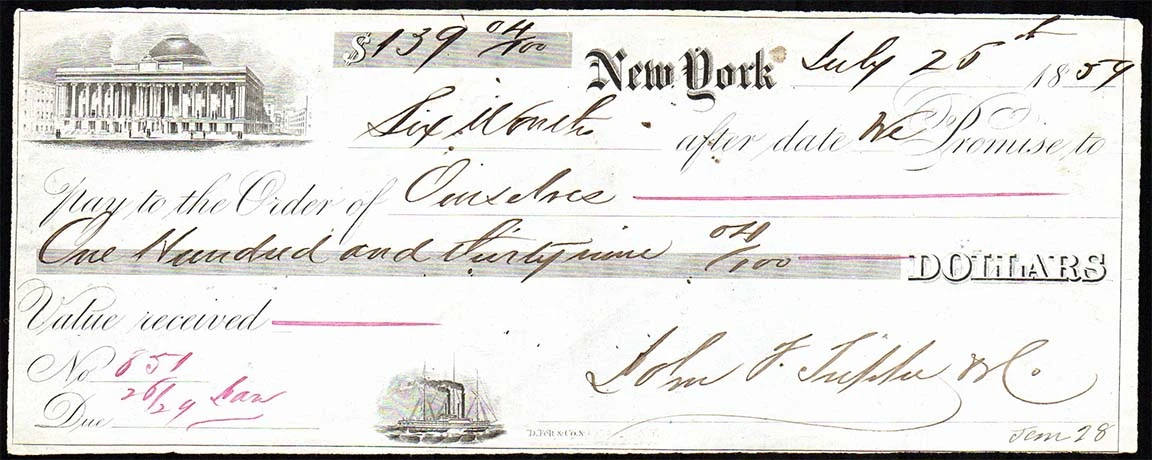 $139 04/100 New York July 26th 1859
Six Months after date We Promise to
pay to the Order of Ourselves
One Hundred and thirty nine 04/100 DOLLARS
Value received
No 851
Due 26/29 Jan
John F. & Co.
D. Felt & Co. N.
28